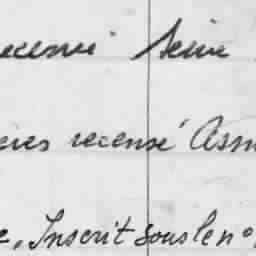 recensé Seine
recensé Asn
Inscrit sous le n°